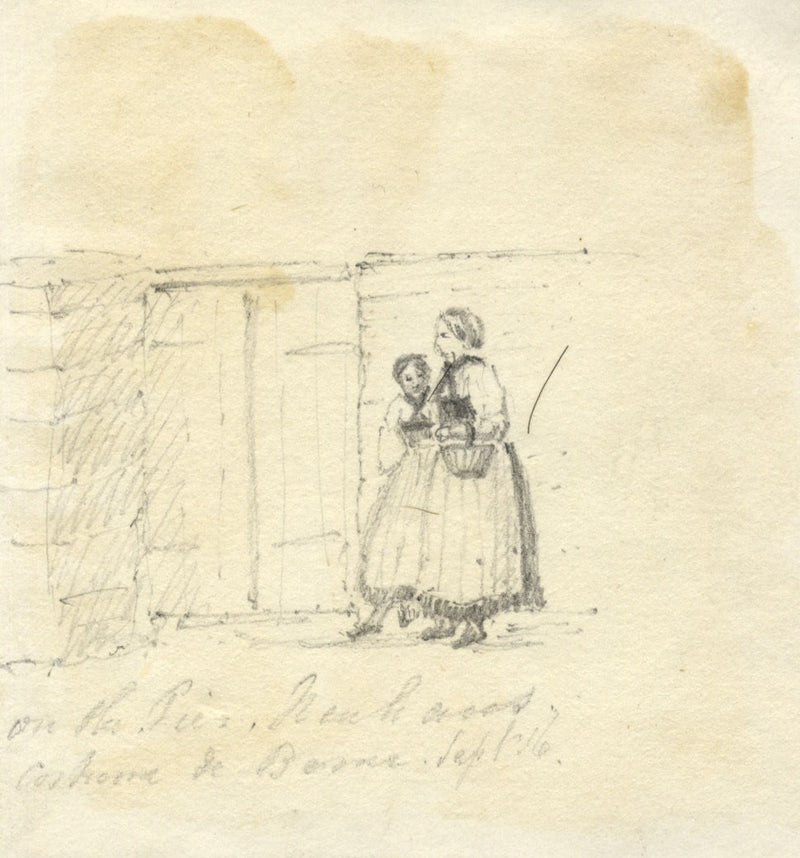 on the Pier. Neuhaus.
costume de Berne. Sept 16.